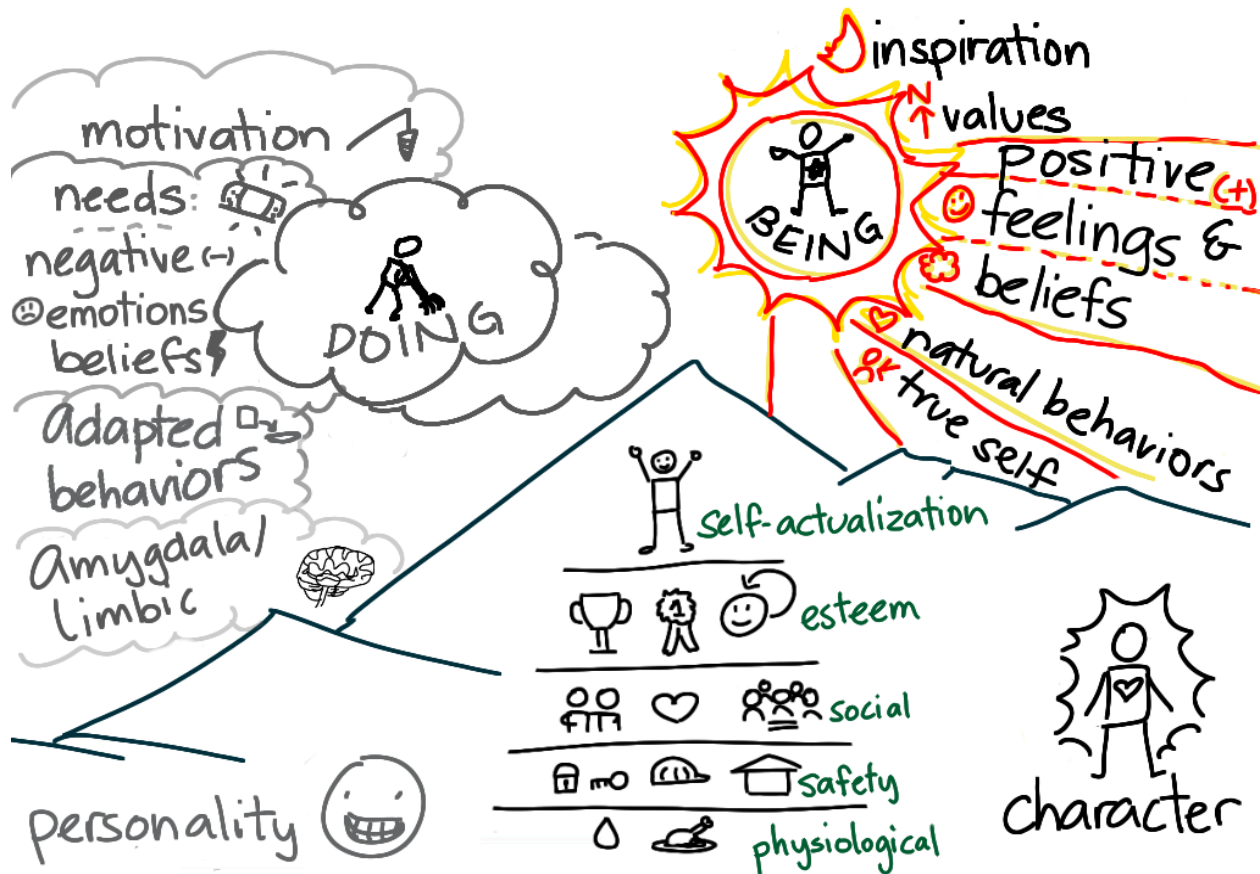 motivation
needs:
negative (-)
emotions
beliefs
DOING
adapted
behaviors
amygdala/
limbic
personality
inspiration
N
values
positive (+)
feelings &
beliefs
BEING
natural behaviors
true self
self-actualization
1
esteem
social
safety
physiological
character